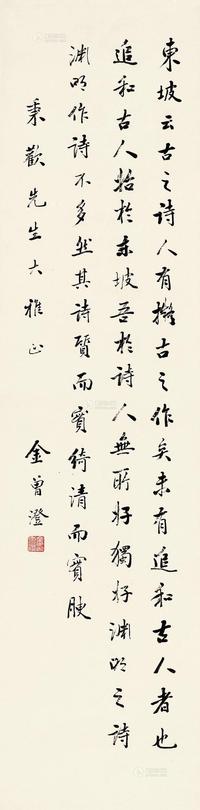 東坡云古之詩人有擬古之作矣未有追和古人者也
追和古人始於東坡吾於詩人無所好獨好淵明之詩
淵明作詩不多然其詩質而實綺清而實腴
秉歡先生大雅正
金曾澄